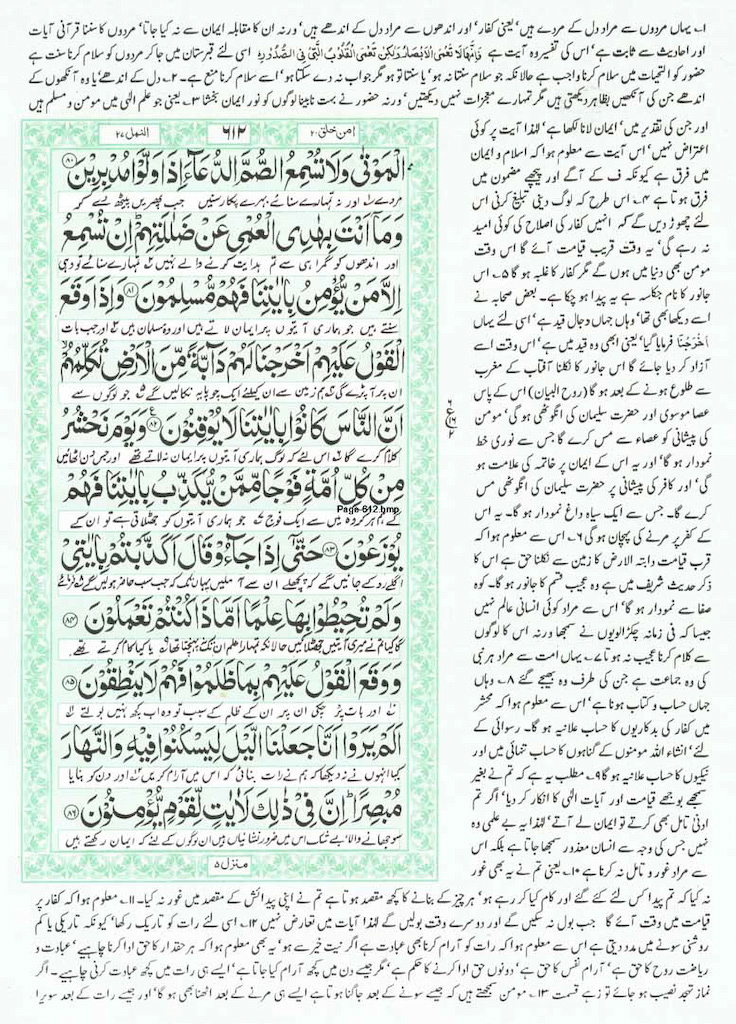 ۱۔ یہاں مردوں سے مراد دل کے مردے ہیں' یعنی کفار' اور اندھوں سے مراد دل کے اندھے ہیں' ورنہ ان کا مقابلہ ایمان سے نہ کیا جاتا' مردوں کا سننا قرآنی آیات
اور احادیث سے ثابت ہے' اس کی تفسیر وہ آیت ہے فَاِنَّهَا لَا تَعْمَى الْاَبْصَارُ وَلٰكِنْ تَعْمَى الْقُلُوْبُ الَّتِىْ فِى الصُّدُوْرِ اسی لئے قبرستان میں جا کر مردوں کو سلام کرنا سنت ہے
حضور کو التحیات میں سلام کرنا واجب ہے حالانکہ جو سلام سنتا نہ ہو' یا سنتا تو ہو مگر جواب نہ دے سکتا ہو' اسے سلام کرنا منع ہے۔ ۲۔ دل کے اندھے' یا وہ آنکھوں کے
اندھے جن کی آنکھیں بظاہر دیکھتی ہیں مگر تمہارے معجزات نہیں دیکھتیں' ورنہ حضور نے بہت نابینا لوگوں کو نور ایمان بخشا ۳۔ یعنی جو علم الٰہی میں مومن و مسلم ہیں
اور جن کی تقدیر میں' ایمان لانا لکھا ہے' لہٰذا آیت پر کوئی
اعتراض نہیں' اس آیت سے معلوم ہوا کہ اسلام و ایمان
میں فرق ہے کیونکہ ف کے آگے اور پیچھے مضمون میں
فرق ہوتا ہے ۴۔ اس طرح کہ لوگ دینی تبلیغ کرنی اس
لئے چھوڑ دیں گے کہ انہیں کفار کی اصلاح کی کوئی امید
نہ رہے گی' یہ وقت قریب قیامت آئے گا اس وقت
مومن بھی دنیا میں ہوں گے مگر کفار کا غلبہ ہو گا ۵۔ اس
جانور کا نام جساسہ ہے یہ پیدا ہو چکا ہے۔ بعض صحابہ نے
اسے دیکھا بھی تھا' وہاں جہاں دجال قید ہے' اسی لئے یہاں
اَخْرَجْنَا فرمایا گیا' یعنی ابھی وہ قید میں ہے' اس وقت اسے
آزاد کر دیا جائے گا اس جانور کا نکلنا آفتاب کے مغرب
سے طلوع ہونے کے بعد ہو گا (روح البیان) اس کے پاس
عصا موسوی اور حضرت سلیمان کی انگوٹھی ہو گی' مومن
کی پیشانی کو عصاء سے مس کرے گا جس سے نوری خط
نمودار ہو گا' اور یہ اس کے ایمان پر خاتمہ کی علامت ہو
گی' اور کافر کی پیشانی پر حضرت سلیمان کی انگوٹھی مس
کرے گا۔ جس سے ایک سیاہ داغ نمودار ہو گا۔ یہ اس
کے کفر پر مرنے کی پہچان ہو گی ۶۔ اس سے معلوم ہوا کہ
قرب قیامت دابتہ الارض کا زمین سے نکلنا حق ہے اس کا
ذکر حدیث شریف میں ہے وہ عجیب قسم کا جانور ہو گا۔ کوہ
صفا سے نمودار ہو گا' اس سے مراد کوئی انسانی عالم نہیں
جیسا کہ فی زمانہ چکڑالویوں نے سمجھا ورنہ اس کا لوگوں
سے کلام کرنا عجیب نہ ہوتا ۷۔ یہاں امت سے مراد ہر نبی
کی وہ جماعت ہے جن کی طرف وہ بھیجے گئے ۸۔ وہاں
جہاں حساب و کتاب ہونا ہے' اس سے معلوم ہوا کہ محشر
میں کفار کی بدکاریوں کا حساب علانیہ ہو گا۔ رسوائی کے
لئے' انشاء اللہ مومنوں کے گناہوں کا حساب تنہائی میں اور
نیکیوں کا حساب علانیہ ہو گا ۹۔ مطلب یہ ہے کہ تم نے بغیر
سمجھے بوجھے قیامت اور آیات الٰہی کا انکار کر دیا' اگر تم
ادنیٰ تامل بھی کرتے تو ایمان لے آتے' لہٰذا یہ بے علمی وہ
نہیں جس کی وجہ سے انسان معذور سمجھا جاتا ہے بلکہ اس
سے مراد غور و تامل نہ کرنا ہے ۱۰۔ یعنی تم نے یہ بھی غور
امن خلق ۲۰
۶۱۲
النمل ۲۷
الْمَوْتٰى وَلَا تُسْمِعُ الصُّمَّ الدُّعَآءَ اِذَا وَلَّوْا مُدْبِرِيْنَ ۸۰
مردے اور نہ تمہارے سنائے بہرے پکار سنیں جب پھریں پیٹھ دے کر
وَمَآ اَنْتَ بِهٰدِى الْعُمْىِ عَنْ ضَلٰلَتِهِمْ اِنْ تُسْمِعُ
اور اندھوں کو گمراہی سے تم ہدایت کرنے والے نہیں تمہارے سنائے تو وہی
اِلَّا مَنْ يُّؤْمِنُ بِاٰيٰتِنَا فَهُمْ مُّسْلِمُوْنَ ۸۱ وَاِذَا وَقَعَ
سنتے ہیں جو ہماری آیتوں پر ایمان لاتے ہیں اور وہ مسلمان ہیں اور جب بات
الْقَوْلُ عَلَيْهِمْ اَخْرَجْنَا لَهُمْ دَآبَّةً مِّنَ الْاَرْضِ تُكَلِّمُهُمْ
ان پر آ پڑے گی ہم زمین سے ان کیلئے ایک چوپایہ نکالیں گے جو لوگوں سے
اَنَّ النَّاسَ كَانُوْا بِاٰيٰتِنَا لَا يُوْقِنُوْنَ ۸۲ وَيَوْمَ نَحْشُرُ
کلام کرے گا اس لئے کہ لوگ ہماری آیتوں پر ایمان نہ لاتے تھے اور جس دن اٹھائیں
مِنْ كُلِّ اُمَّةٍ فَوْجًا مِّمَّنْ يُّكَذِّبُ بِاٰيٰتِنَا فَهُمْ
Page-612.bmp
گے ہم ہر گروہ میں سے ایک فوج جو ہماری آیتوں کو جھٹلاتی ہے تو ان کے
يُوْزَعُوْنَ ۸۳ حَتّٰىٓ اِذَا جَآءُوْ قَالَ اَكَذَّبْتُمْ بِاٰيٰتِىْ
اگلے روکے جائیں گے کہ پچھلے ان سے آ ملیں یہاں تک کہ جب سب حاضر ہو لیں گے فرمائے
وَلَمْ تُحِيْطُوْا بِهَا عِلْمًا اَمَّاذَا كُنْتُمْ تَعْمَلُوْنَ ۸۴
گا کیا تم نے میری آیتیں جھٹلائیں حالانکہ تمہارا علم ان تک نہ پہنچتا تھا یا کیا کام کرتے تھے
وَوَقَعَ الْقَوْلُ عَلَيْهِمْ بِمَا ظَلَمُوْا فَهُمْ لَا يَنْطِقُوْنَ ۸۵
اور بات پڑ چکی ان پر ان کے ظلم کے سبب تو وہ اب کچھ نہیں بولتے
اَلَمْ يَرَوْا اَنَّا جَعَلْنَا الَّيْلَ لِيَسْكُنُوْا فِيْهِ وَالنَّهَارَ
کیا انہوں نے نہ دیکھا کہ ہم نے رات بنائی کہ اس میں آرام کریں اور دن کو بنایا
مُبْصِرًا اِنَّ فِىْ ذٰلِكَ لَاٰيٰتٍ لِّقَوْمٍ يُّؤْمِنُوْنَ ۸۶
سوجھانے والا' بے شک اس میں ضرور نشانیاں ہیں ان لوگوں کے لئے کہ ایمان رکھتے ہیں
منزل ۵
نہ کیا کہ تم پیدا کس لئے کئے گئے اور کام کیا کر رہے ہو' ہر چیز کے بنانے کا کچھ مقصد ہوتا ہے تم نے اپنی پیدائش کے مقصد میں غور نہ کیا۔ ۱۱۔ معلوم ہوا کہ کفار پر
قیامت میں وقت آئے گا جب بول نہ سکیں گے اور دوسرے وقت بولیں گے لہٰذا آیات میں تعارض نہیں ۱۲۔ اسی لئے رات کو تاریک رکھا' کیونکہ تاریکی یا کم
روشنی سونے میں مدد دیتی ہے اس سے معلوم ہوا کہ رات کو آرام کرنا بھی عبادت ہے اگر نیت خیر سے ہو' یہ بھی معلوم ہوا کہ ہر حقدار کا حق ادا کرنا چاہیے' عبادت و
ریاضت روح کا حق ہے' آرام نفس کا حق ہے' دونوں حق ادا کرنے کا حکم ہے' مگر جیسے دن میں کچھ آرام کیا جاتا ہے' ایسے ہی رات میں کچھ عبادت کرنی چاہیے۔ اگر
نماز تہجد نصیب ہو جائے تو زہے قسمت ۱۳۔ مومن سمجھتے ہیں کہ جیسے سونے کے بعد جاگنا ہوتا ہے ایسے ہی مرنے کے بعد اٹھنا بھی ہو گا' اور جیسے رات کے بعد سویرا